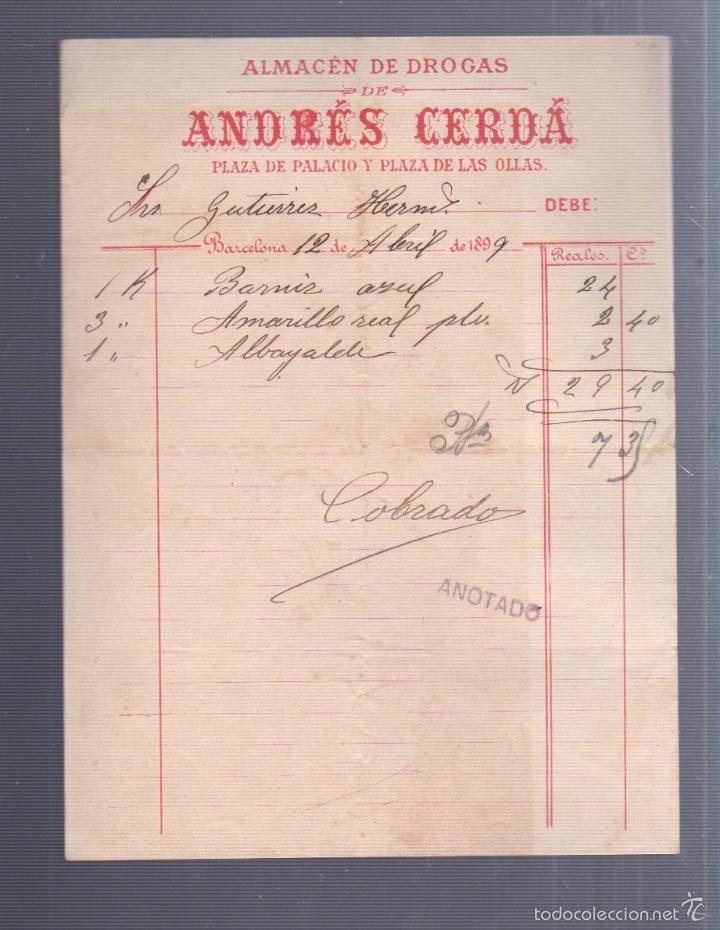 ALMACÉN DE DROGAS
DE
ANDRÉS CERDÁ
PLAZA DE PALACIO Y PLAZA DE LAS OLLAS.
Sres Gutierrez Hermˢ. DEBE:
Barcelona 12 de Abril de 1899 Reales. Cˢ
1 K Barniz azul 24
3 " Amarillo real plv. 2 40
1 " Albayalde 3
29 40
7 35
Cobrado
ANOTADO
todocoleccion.net